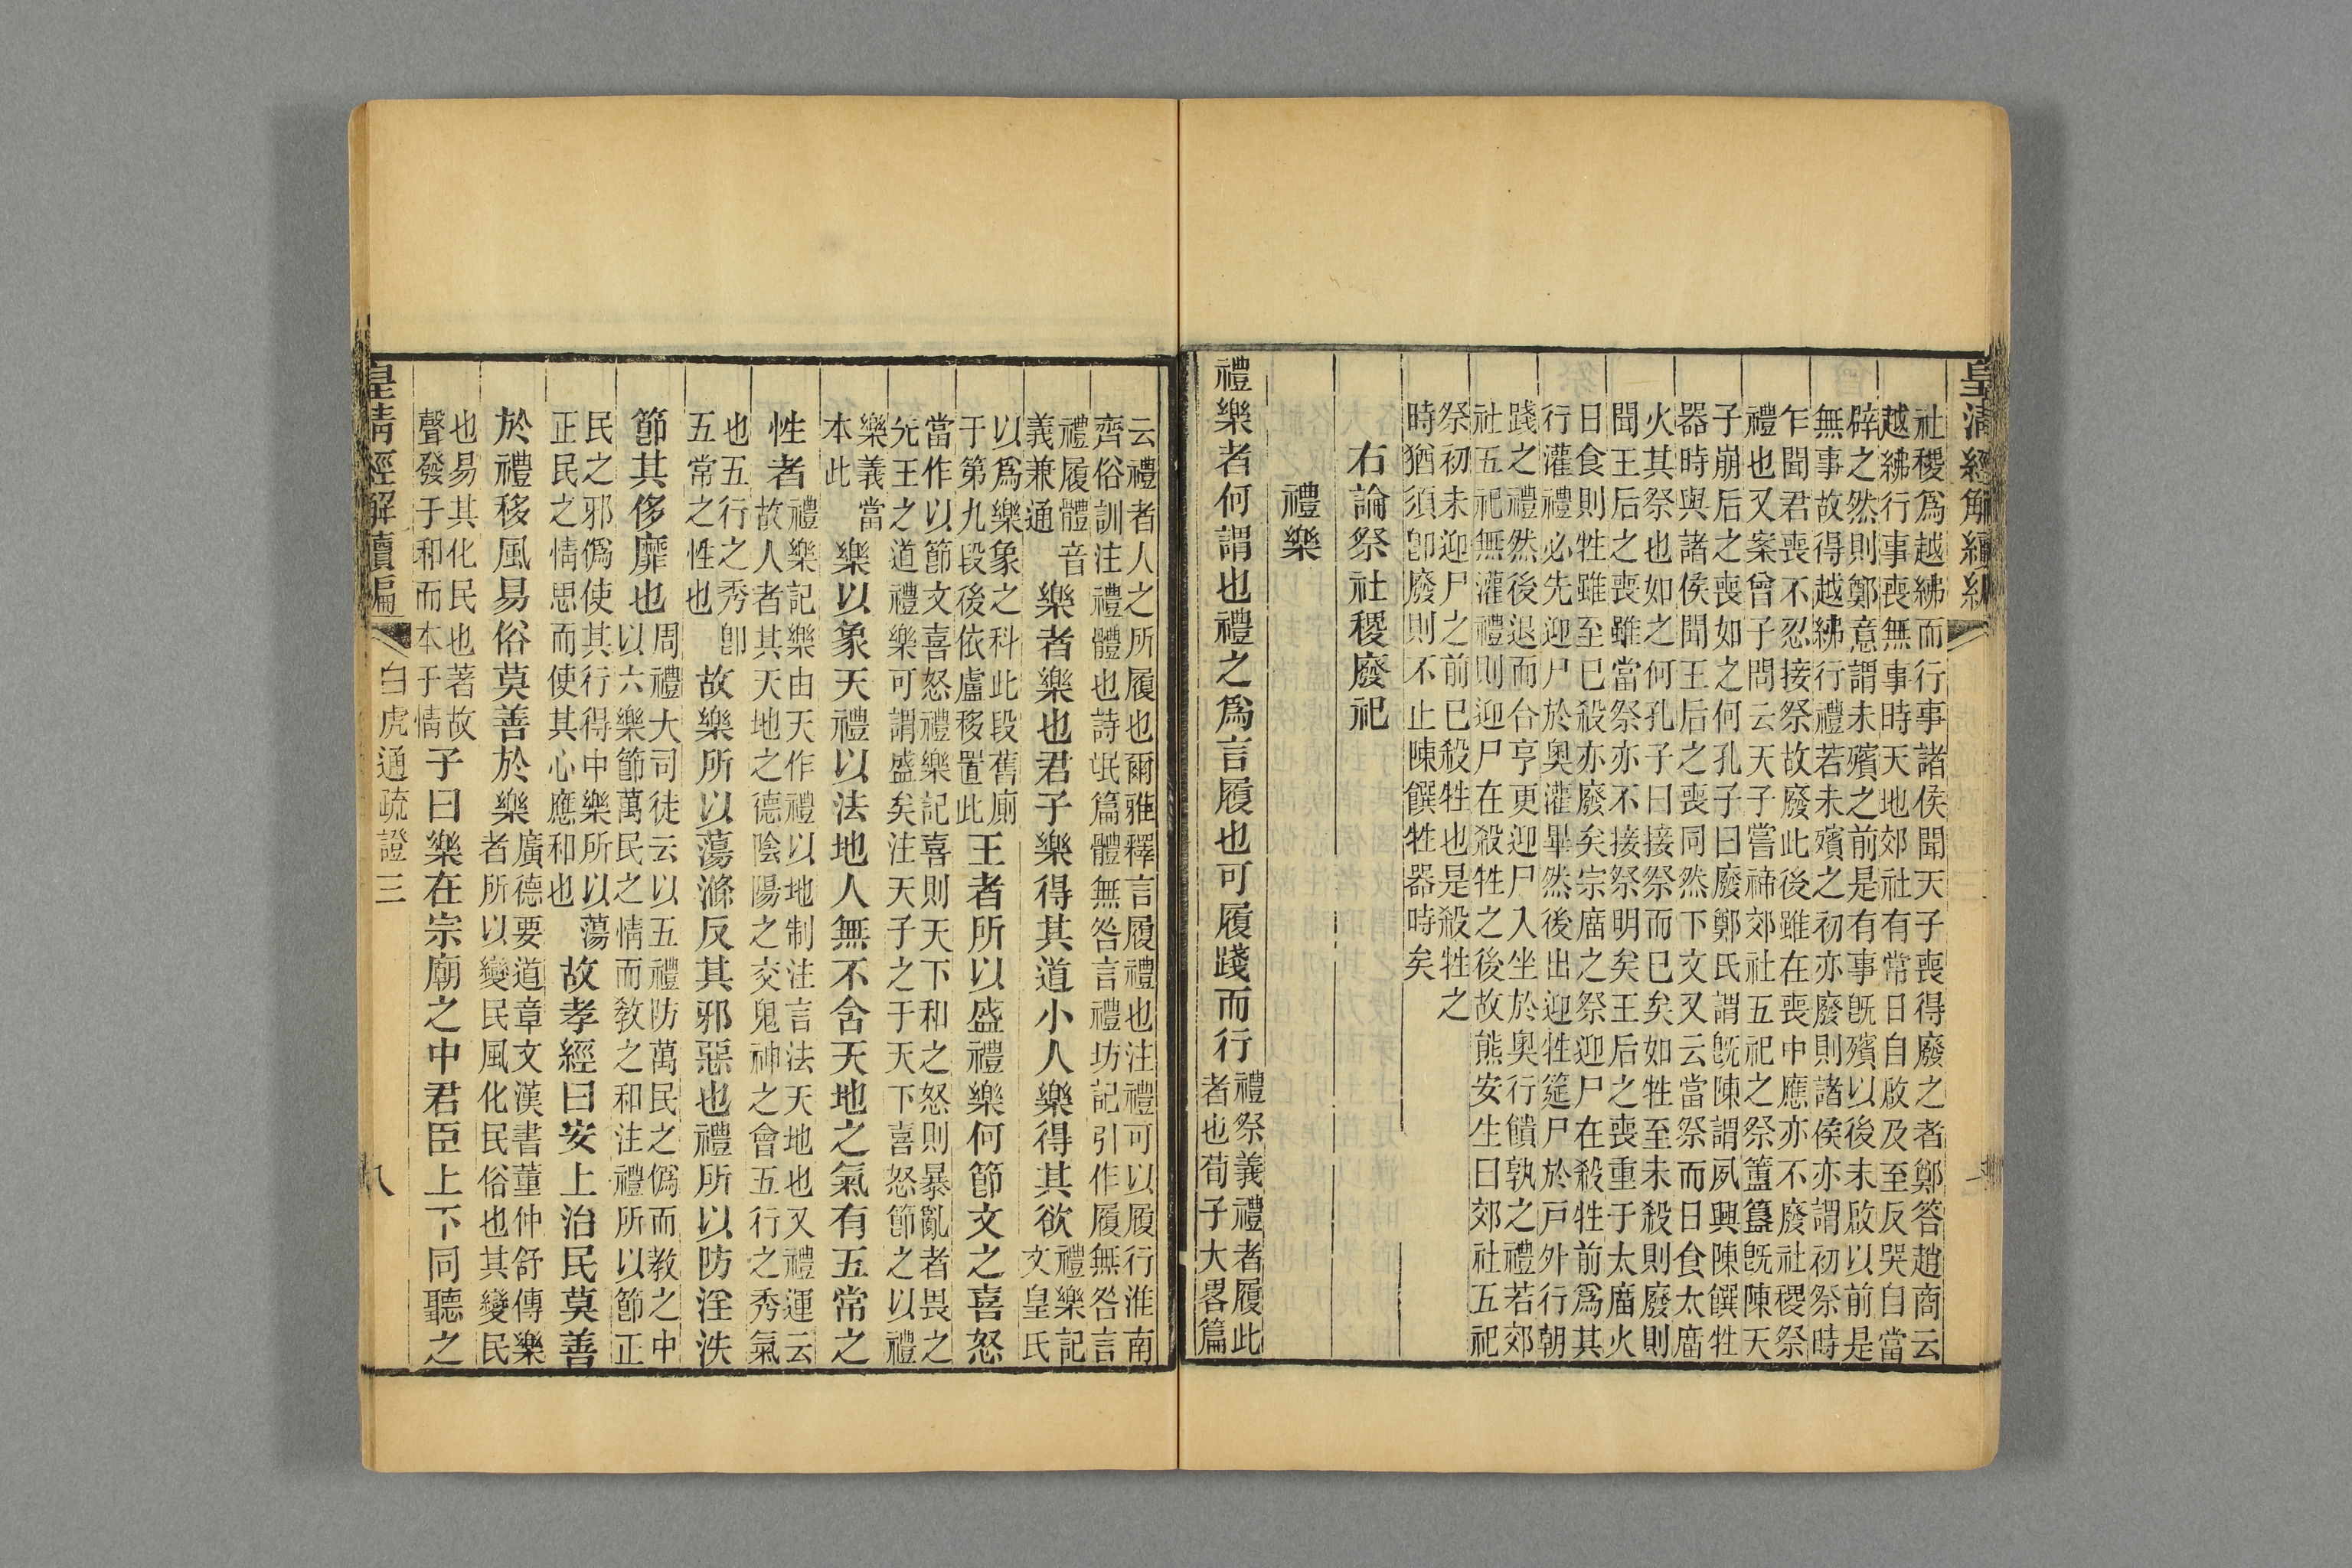 皇清經解續編
社稷爲越紼而行事諸侯聞天子喪得廢之者鄭答趙商云
越紼行事喪無事時天地郊社有常日自啟及至反哭自當
辟之然則鄭意謂未殯之前是有事旣殯以後未啟以前是
無事故得越紼行禮若未殯之初亦廢則諸侯亦謂初祭時
乍聞君喪不忍接祭故廢此後雖在喪中應亦不廢社稷祭
禮也又案曾子問云天子嘗禘郊社五祀之祭簠簋旣陳天
子崩后之喪如之何孔子曰廢鄭氏謂旣陳謂夙興陳饌牲
器時與諸侯聞王后之喪同然下文又云當祭而日食太廟
火其祭也如之何孔子曰接祭而已矣如牲至未殺則廢則
聞王后之喪雖當祭亦不接祭明矣王后之喪重于太廟火
日食則牲雖至已殺亦廢矣宗廟之祭迎尸在殺牲前爲其
行灌禮必先迎尸於奧灌畢然後出迎牲筵尸於戶外行朝
踐之禮然後退而合亨更迎尸入坐於奧行饋孰之禮若郊
社五祀無灌禮則迎尸在殺牲之後故熊安生曰郊社五祀
祭初未迎尸之前已殺牲也是殺牲之
時猶須卽廢則不止陳饌牲器時矣
右論祭社稷廢祀
禮樂
禮樂者何謂也禮之爲言履也可履踐而行
禮祭義禮者履此
者也荀子大畧篇
云禮者人之所履也爾雅釋言履禮也注禮可以履行淮南
齊俗訓注禮體也詩氓篇體無咎言禮坊記引作履無咎言
禮履體音
義兼通
樂者樂也君子樂得其道小人樂得其欲
禮樂記
文皇氏
以爲樂象之科此段舊廁
于第九段後依盧移置此
王者所以盛禮樂何節文之喜怒
當作以節文喜怒禮樂記喜則天下和之怒則暴亂者畏之
先王之道禮樂可謂盛矣注天子之于天下喜怒節之以禮
樂義當
本此
樂以象天禮以法地人無不含天地之氣有五常之
性者
禮樂記樂由天作禮以地制注言法天地也又禮運云
故人者其天地之德陰陽之交鬼神之會五行之秀氣
也五行之秀卽
五常之性也
故樂所以蕩滌反其邪惡也禮所以防淫泆
節其侈靡也
周禮大司徒云以五禮防萬民之僞而教之中
以六樂節萬民之情而教之和注禮所以節正
民之邪僞使其行得中樂所以蕩
正民之情思而使其心應和也
故孝經曰安上治民莫善
於禮移風易俗莫善於樂
廣德要道章文漢書董仲舒傳樂
者所以變民風化民俗也其變民
也易其化民也著故
聲發于和而本于情
子曰樂在宗廟之中君臣上下同聽之
皇清經解續編
白虎通疏證三
八